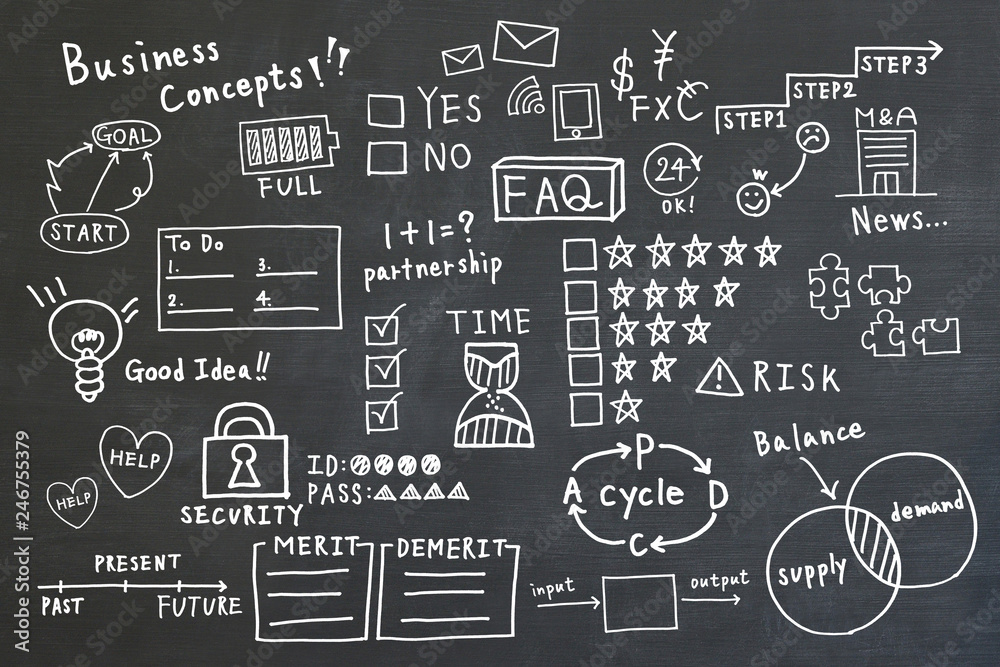 Business
Concepts!!!
$ ¥
FX €
STEP3
STEP2
STEP1
YES
NO
GOAL
START
FULL
FAQ
24
OK!
M&A
News...
To Do
1.
2.
3.
4.
1+1=?
partnership
TIME
Good Idea!!
RISK
HELP
HELP
SECURITY
ID:
PASS:
P
A cycle D
C
Balance
supply
demand
PRESENT
PAST
FUTURE
MERIT
DEMERIT
input
output
Adobe Stock | #246755379
Adobe Stock